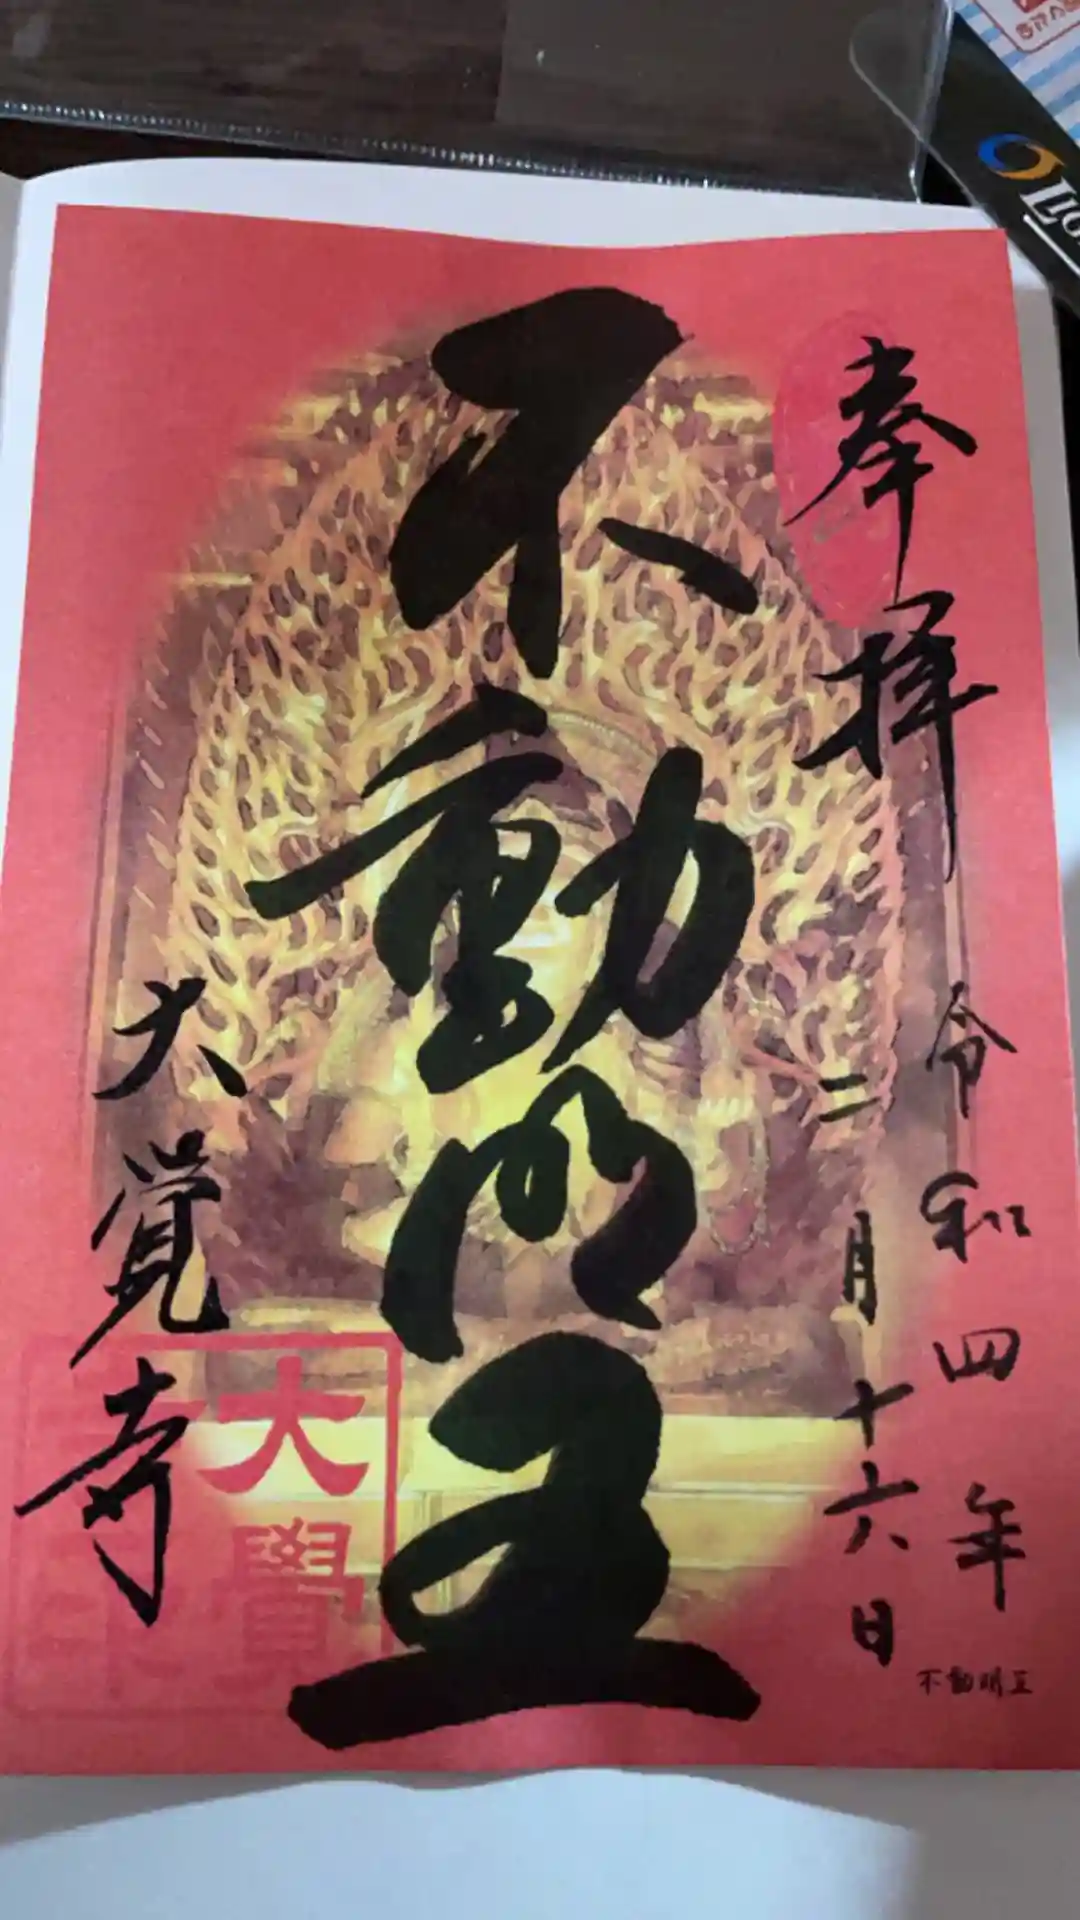 奉拝
令和四年
二月十六日
不動明王
不動明王
大覚寺
大覺